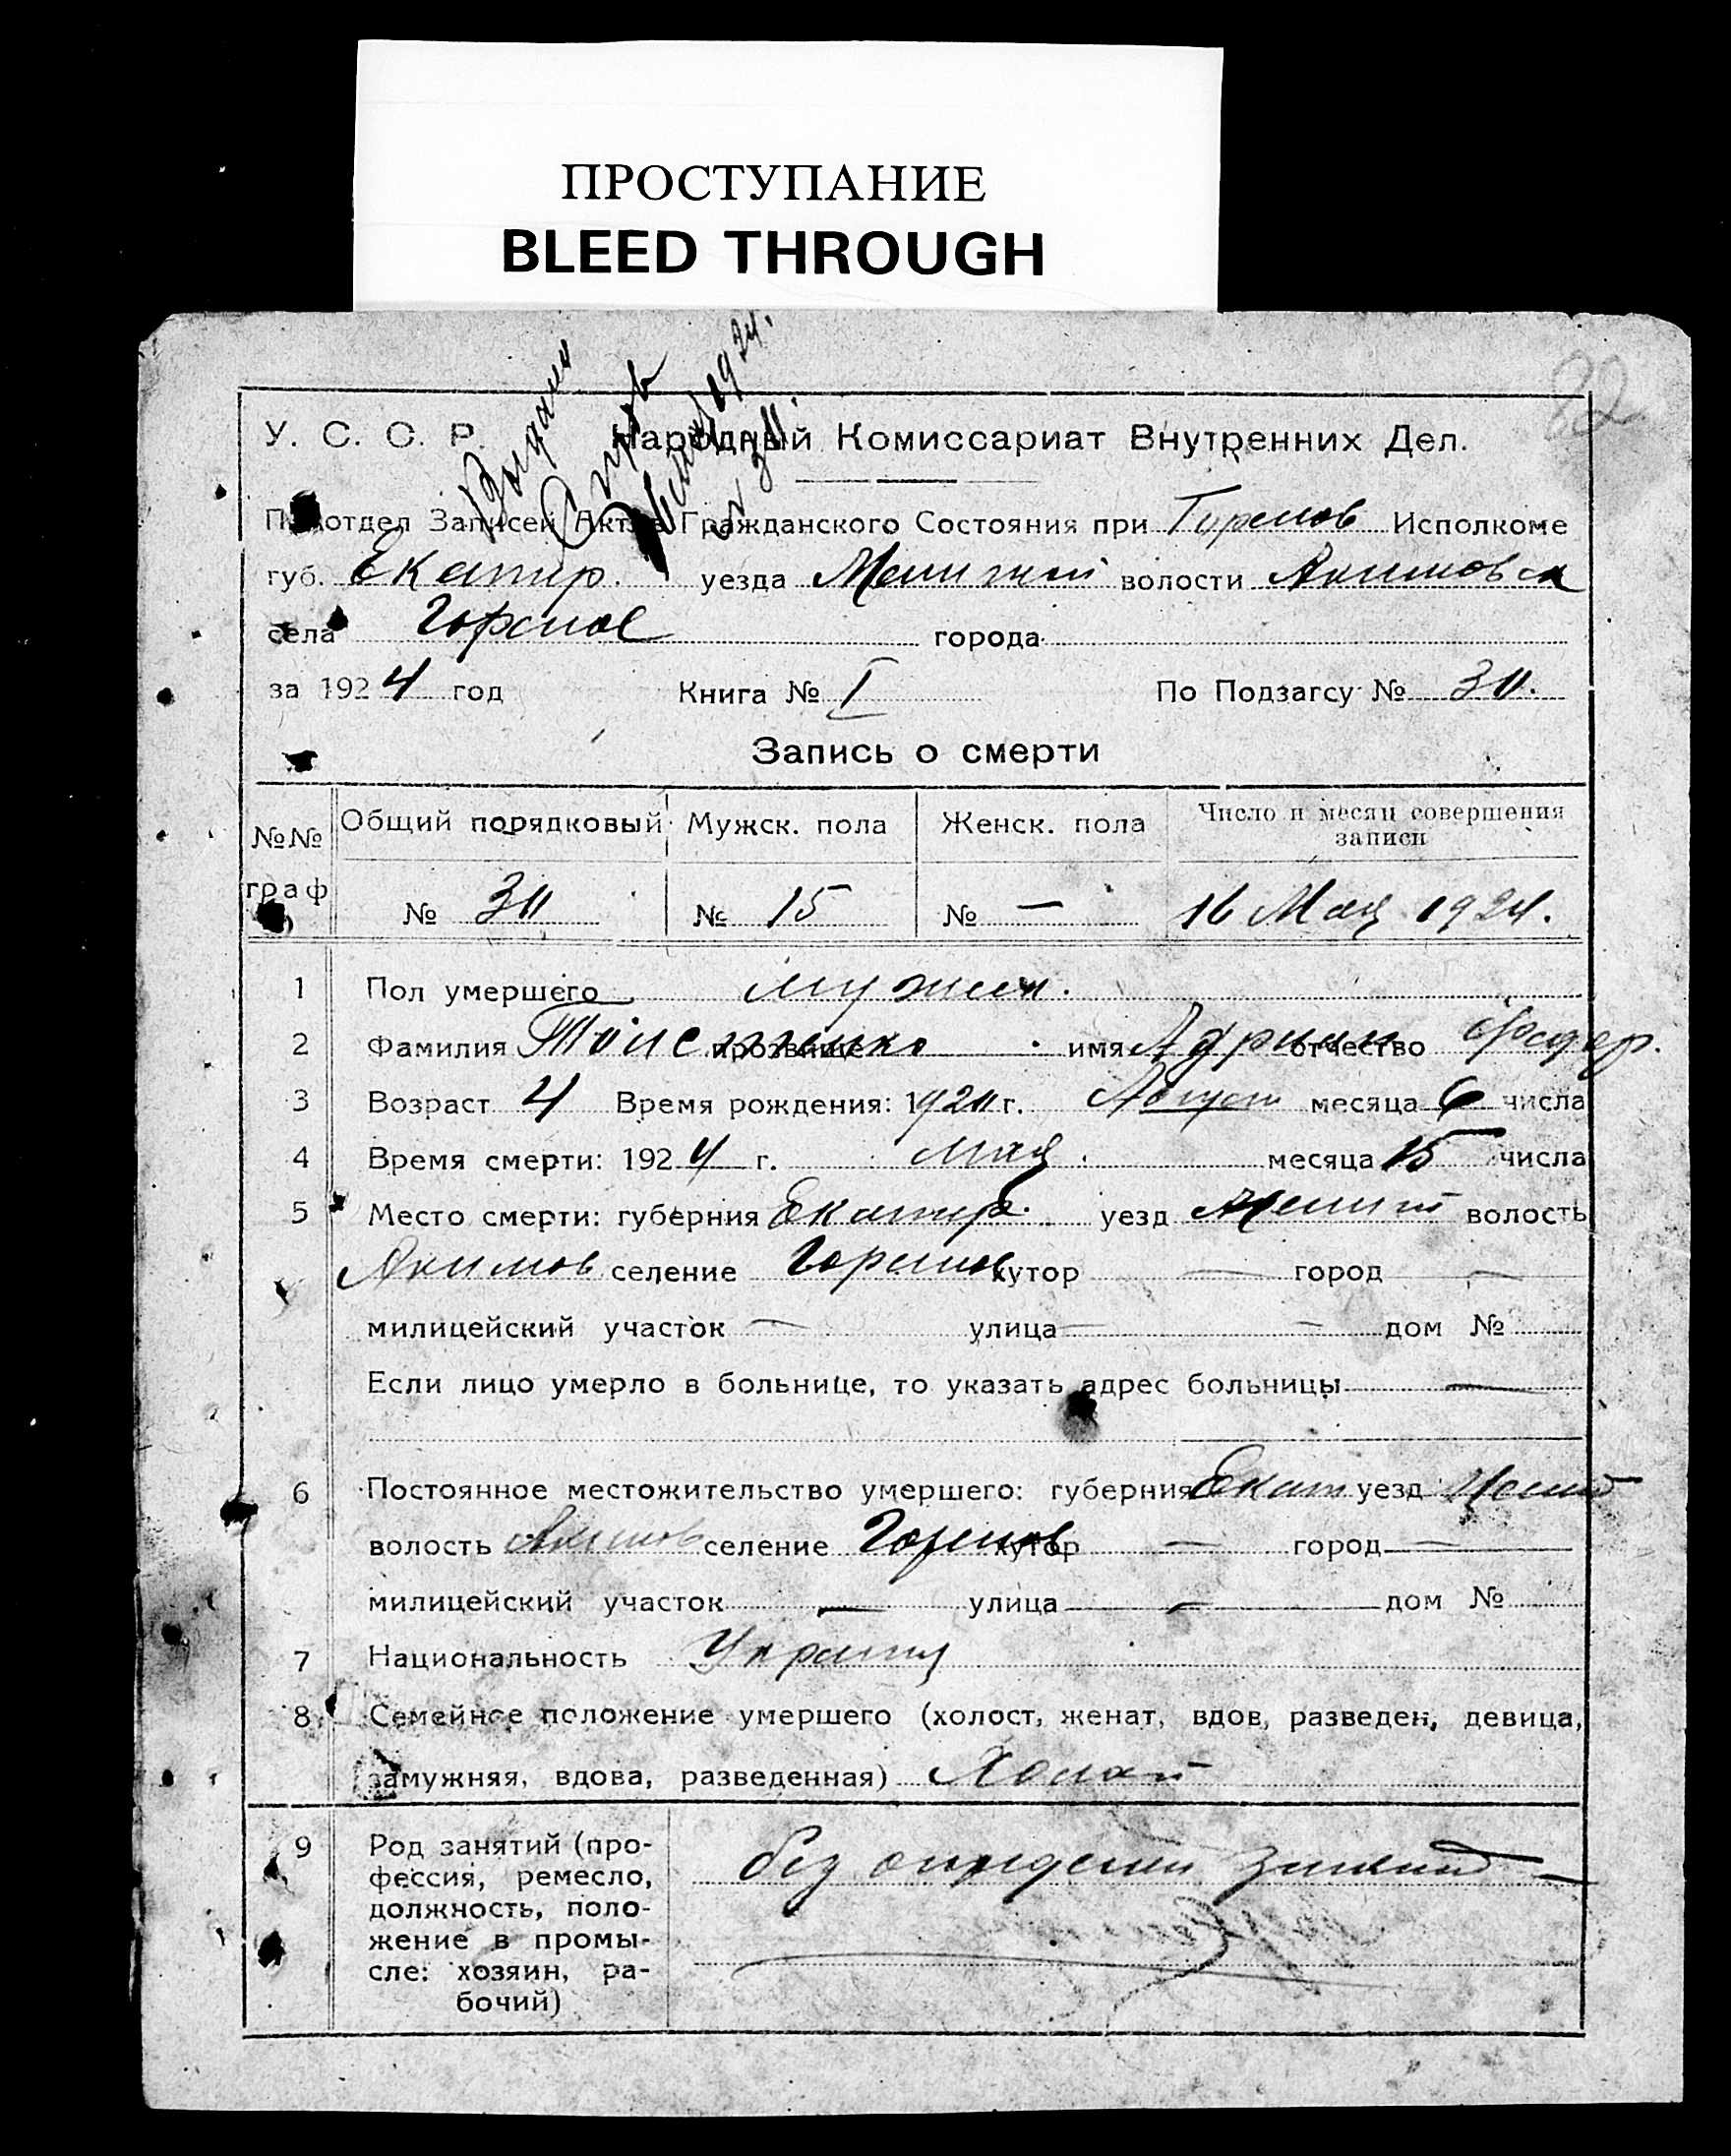 ПРОСТУПАНИЕ
BLEED THROUGH
82
У. С. С. Р. Народный Комиссариат Внутренних Дел.
Подотдел Записей Актов Гражданского Состояния при Горелов Исполкоме
губ. Екатер. уезда волости Акимовск
села Горелое города
за 1924 год Книга № I По Подзагсу № 30.
Запись о смерти
№№ граф Общий порядковый Мужск. пола Женск. пола Число и месяц совершения записи
№ 30 № 15 № — 16 Мая 1924.
1 Пол умершего мужск.
2 Фамилия прозвище имя Адриан отчество Федор.
3 Возраст 4 Время рождения: 1920 г. Август месяца 6 числа
4 Время смерти: 1924 г. мая месяца 15 числа
5 Место смерти: губерния Екатер. уезд Мелит волость
Акимов селение Горелов хутор — город —
милицейский участок — улица — дом №
Если лицо умерло в больнице, то указать адрес больницы —
6 Постоянное местожительство умершего: губерния Екат уезд Мелит
волость Акимов селение Горелов хутор — город —
милицейский участок — улица — дом №
7 Национальность
8 Семейное положение умершего (холост, женат, вдов, разведен, девица,
замужняя, вдова, разведенная) Холост
9 Род занятий (про-
фессия, ремесло,
должность, поло-
жение в промы-
сле: хозяин, ра-
бочий)
без